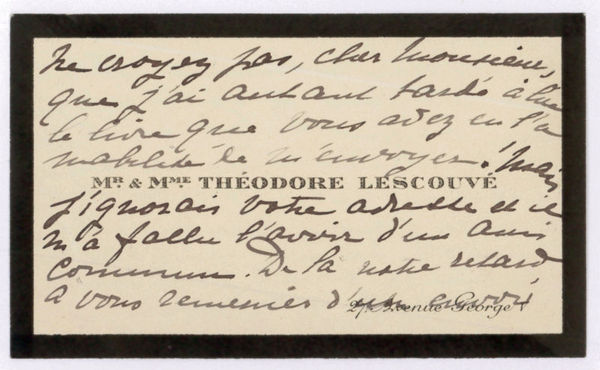 Ne croyez pas, cher Monsieur,
que j'ai autant tardé à lire
le livre que vous avez eu l'a
mabilité de m'envoyer. Mais
MR. & MME THÉODORE LESCOUVÉ
j'ignorais votre adresse et il
m'a fallu l'avoir d'un ami
commun. De là notre retard
à vous remercier d'un envoi
2, Avenue George V